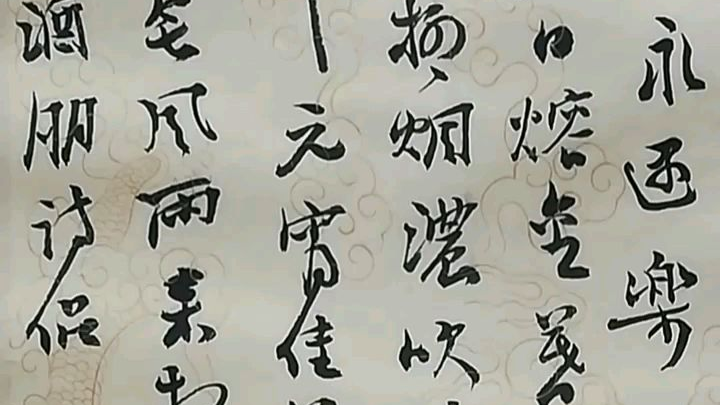 永遇樂
日熔金暮
柳烟濃吹
元宵佳
风雨来
酒朋诗侣